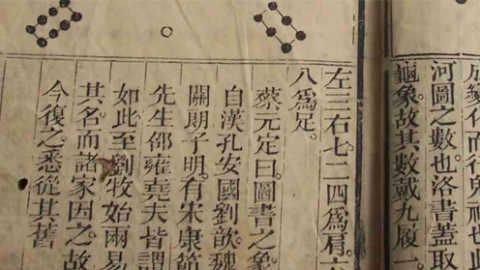 成變化而行鬼神也此
河圖之數也洛書蓋取
龜象故其數戴九履一
左三右七二四爲肩六
八爲足。
蔡元定曰圖書之象
自漢孔安國劉歆魏
關朗子明。有宋康節
先生邵雍堯夫皆謂
如此至劉牧始兩易
其名而諸家因之。故
今復之。悉從其舊